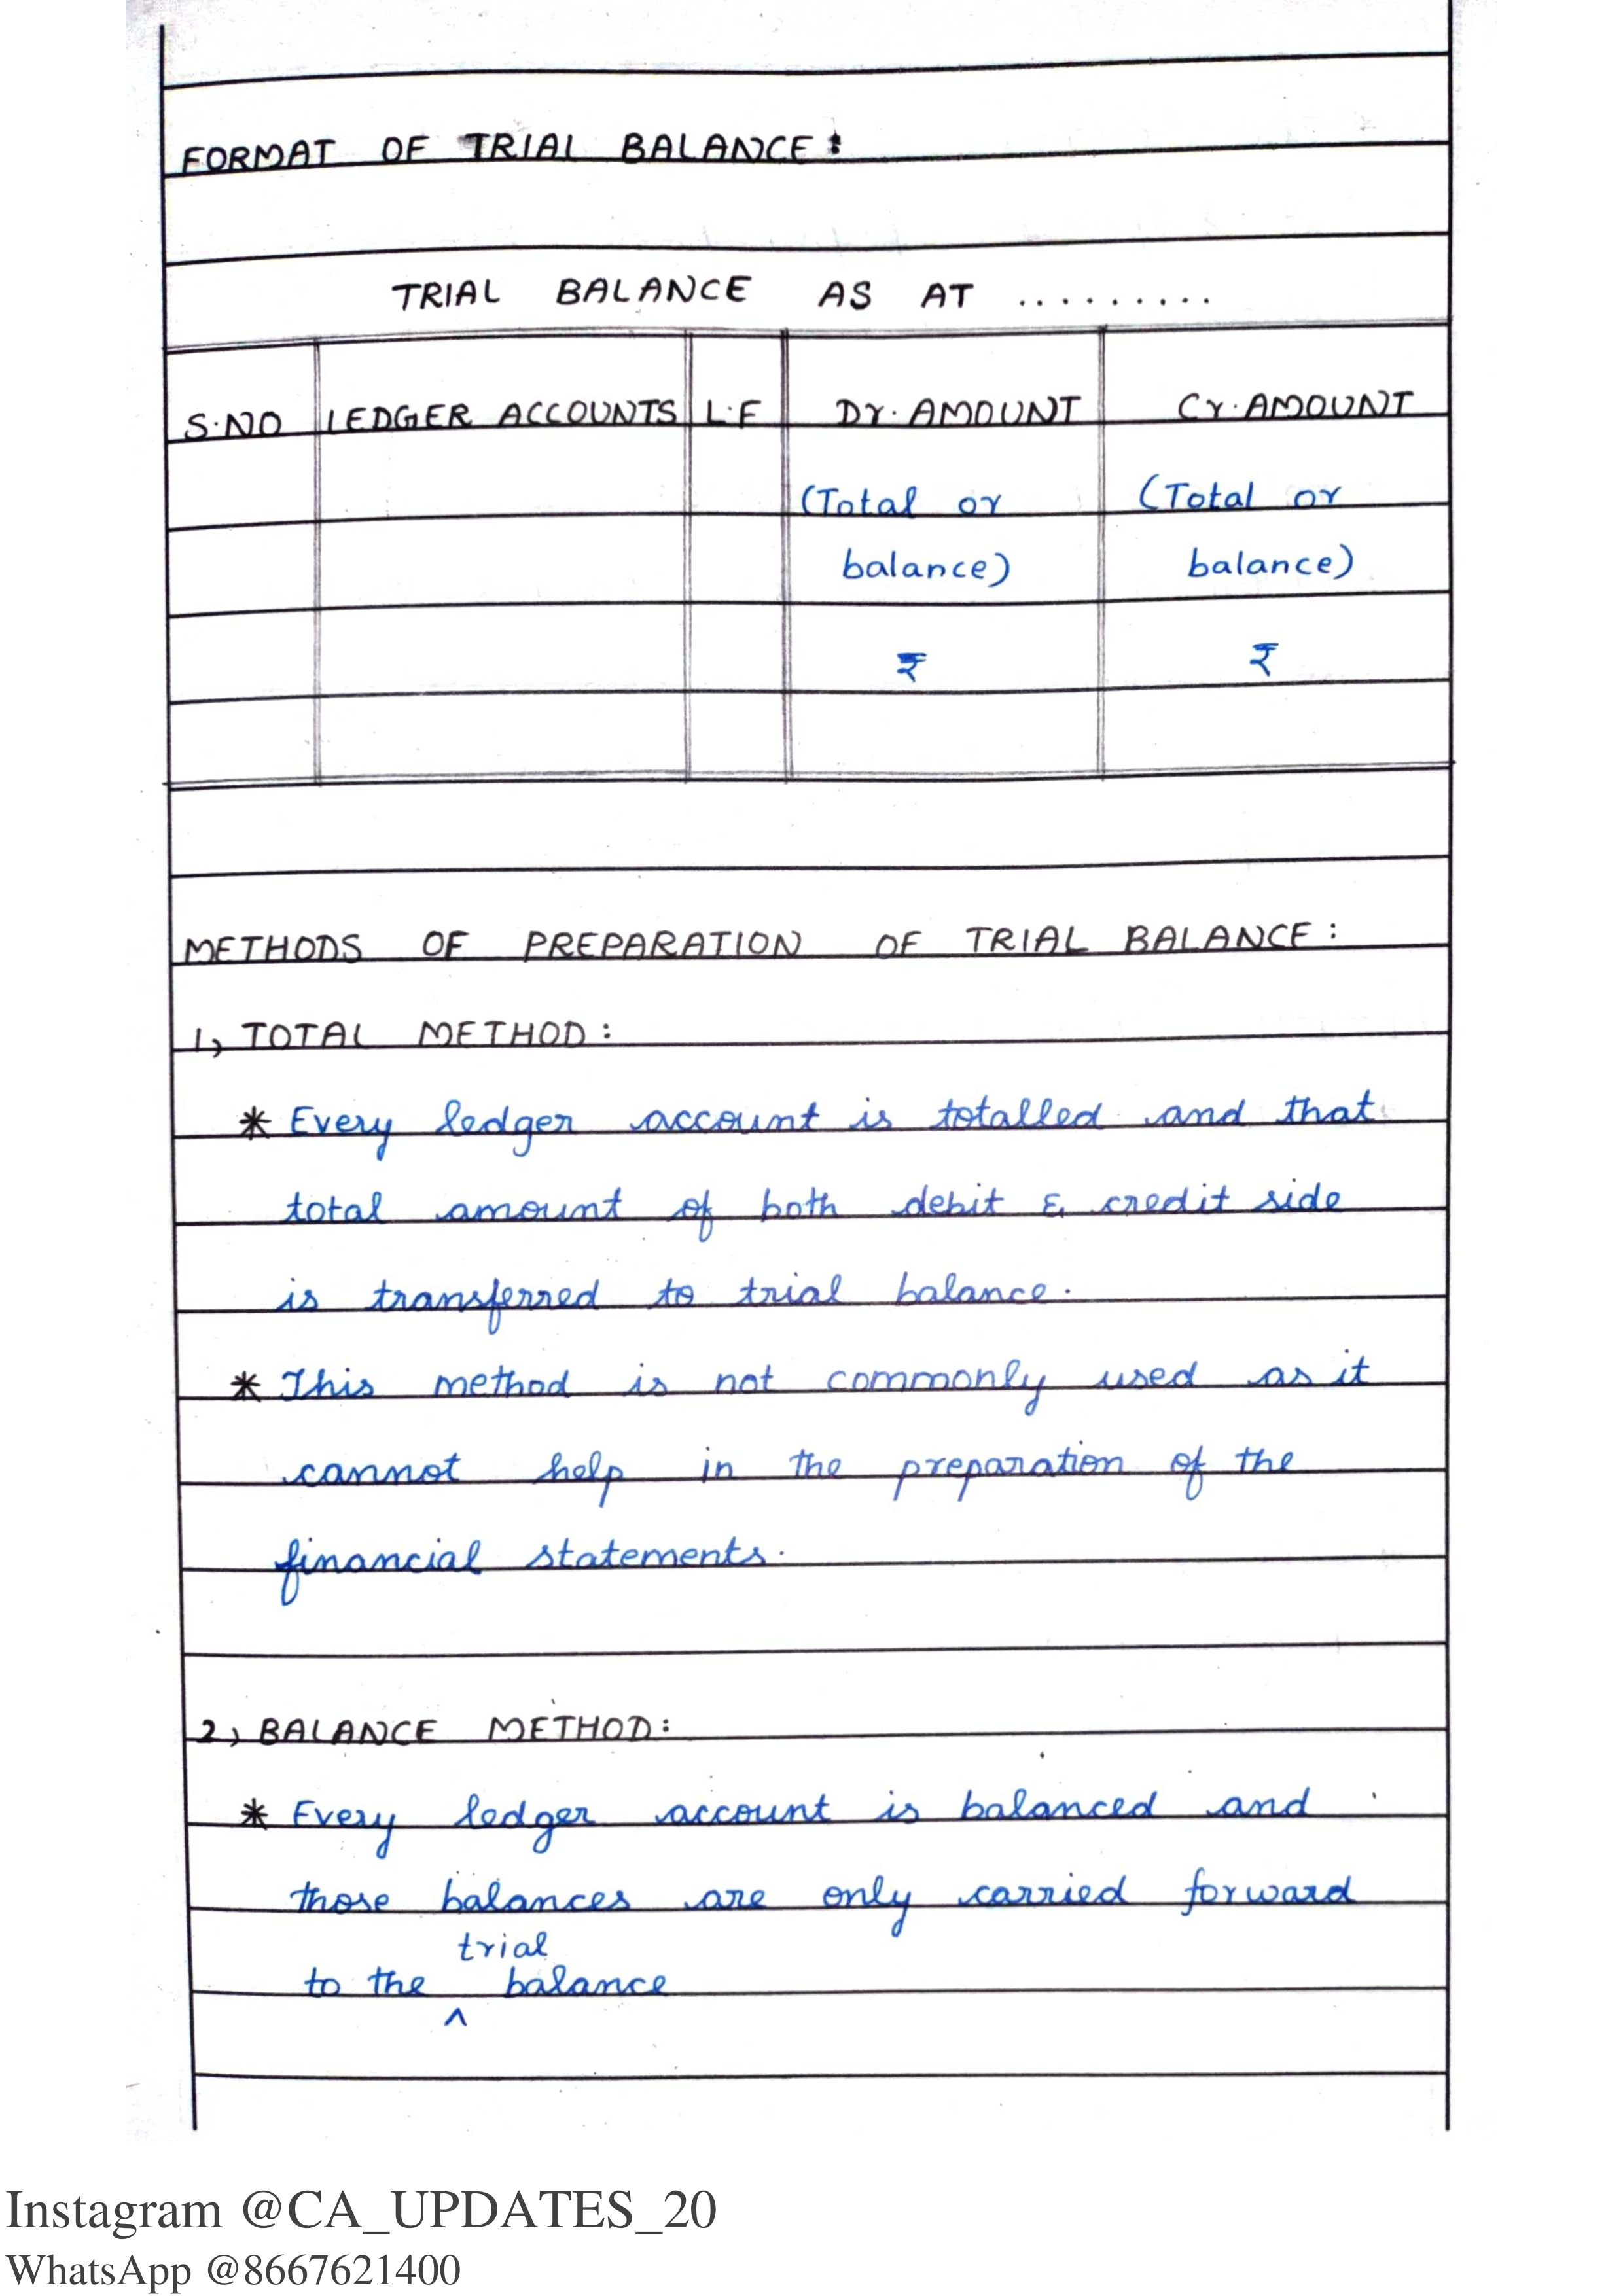 FORMAT OF TRIAL BALANCE:
TRIAL BALANCE AS AT .........
S.NO LEDGER ACCOUNTS L.F Dr. AMOUNT Cr. AMOUNT
(Total or (Total or
balance) balance)
₹ ₹
METHODS OF PREPARATION OF TRIAL BALANCE:
1, TOTAL METHOD:
* Every ledger account is totalled and that
total amount of both debit & credit side
is transferred to trial balance.
* This method is not commonly used as it
cannot help in the preparation of the
financial statements.
2, BALANCE METHOD:
* Every ledger account is balanced and
those balances are only carried forward
trial
to the ^ balance
Instagram @CA_UPDATES_20
WhatsApp @8667621400